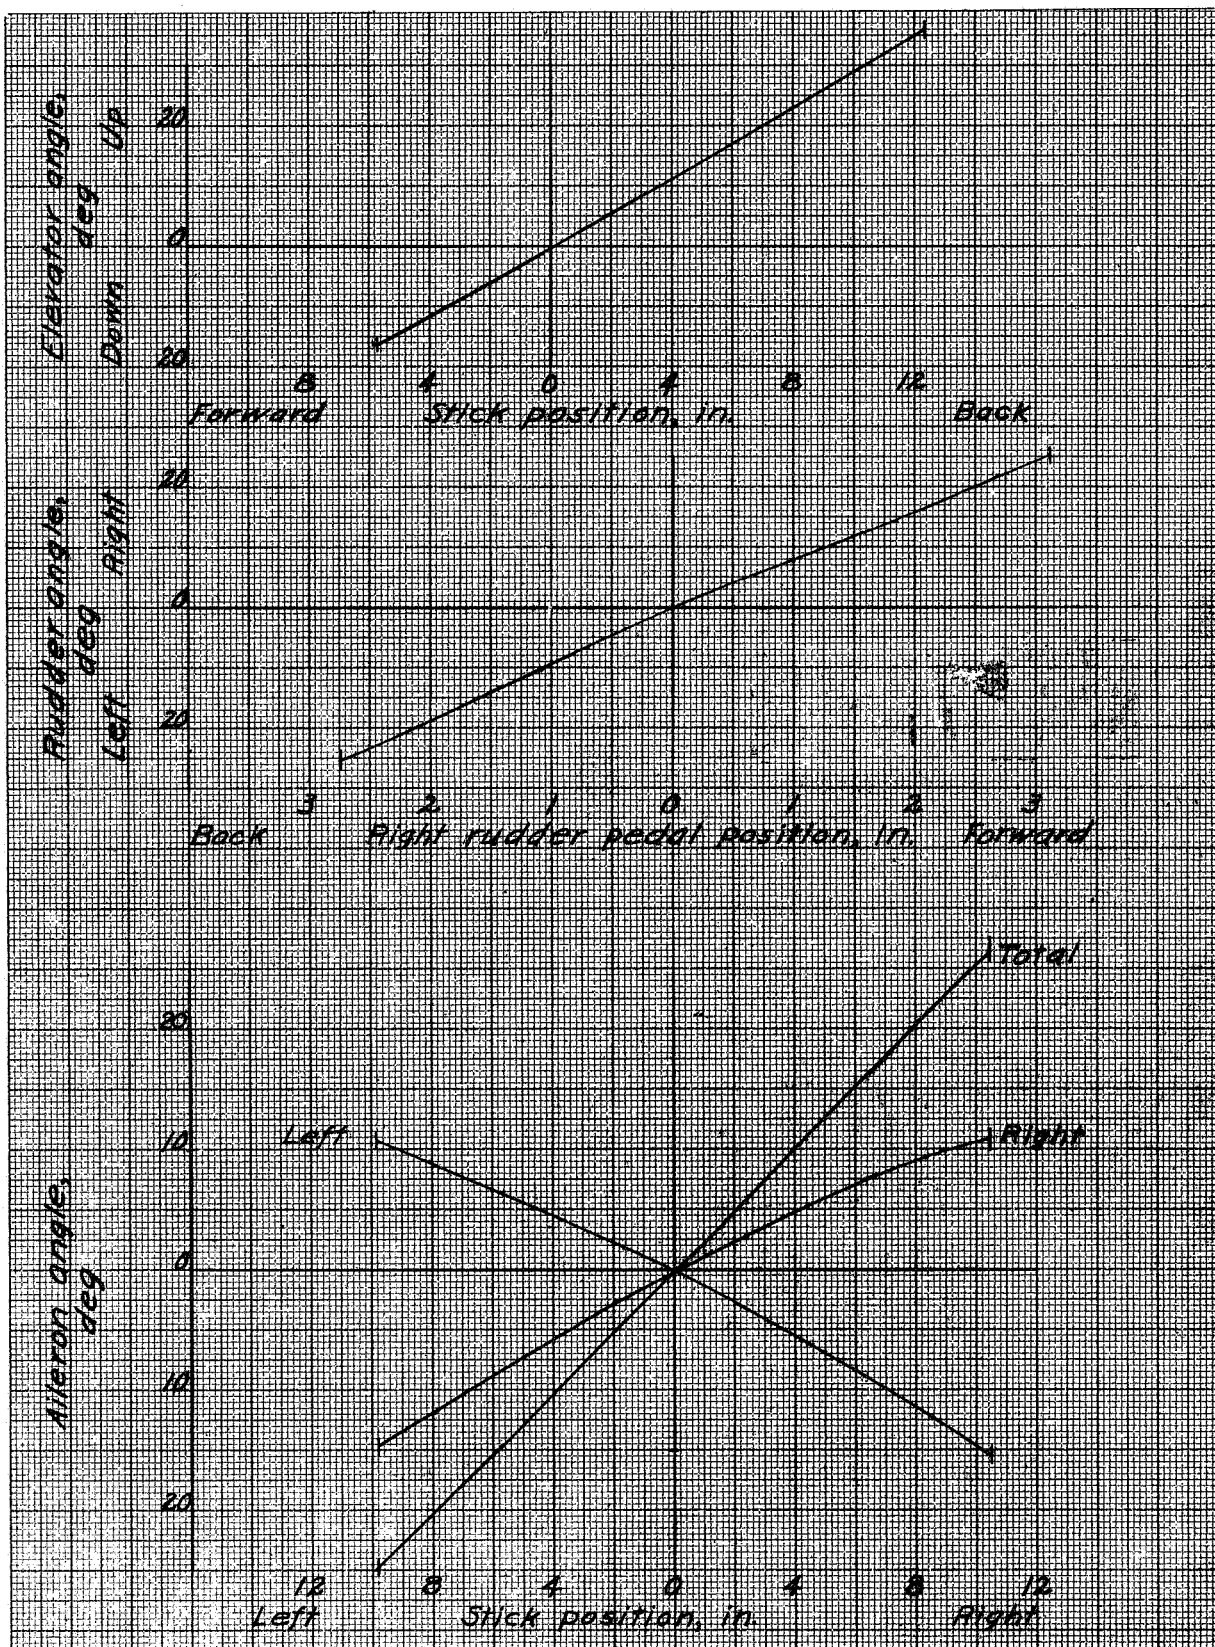 Elevator angle,
deg
Down Up
20
0
20
8 4 0 4 8 12
Forward Stick position, in. Back
Rudder angle,
deg
Left Right
20
0
20
3 2 1 0 1 2 3
Back Right rudder pedal position, in. Forward
Aileron angle,
deg
Total
20
Left
10
Right
0
10
20
12 8 4 0 4 8 12
Left Stick position, in. Right